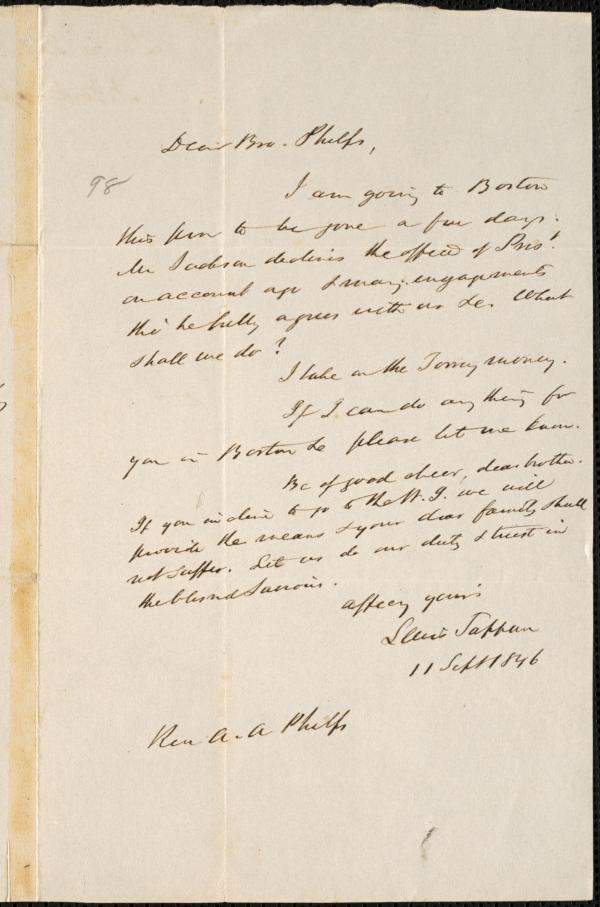 Dear Bro. Phelps,
98
I am going to Boston
this p.m. to be gone a few days.
Mr Jackson declines the office of Pres.t
on account age & many engagements
tho' he fully agrees with us &c. What
shall we do?
I take on the Torrey money.
If I can do any thing for
you in Boston &c please let me know.
Be of good cheer, dear brother.
If you incline to go to the W. I. we will
provide the means & your dear family shall
not suffer. Let us do our duty & trust in
the blessed Saviour.
affecy yours
Lewis Tappan
11 Sept 1846
Rev A. A Phelps